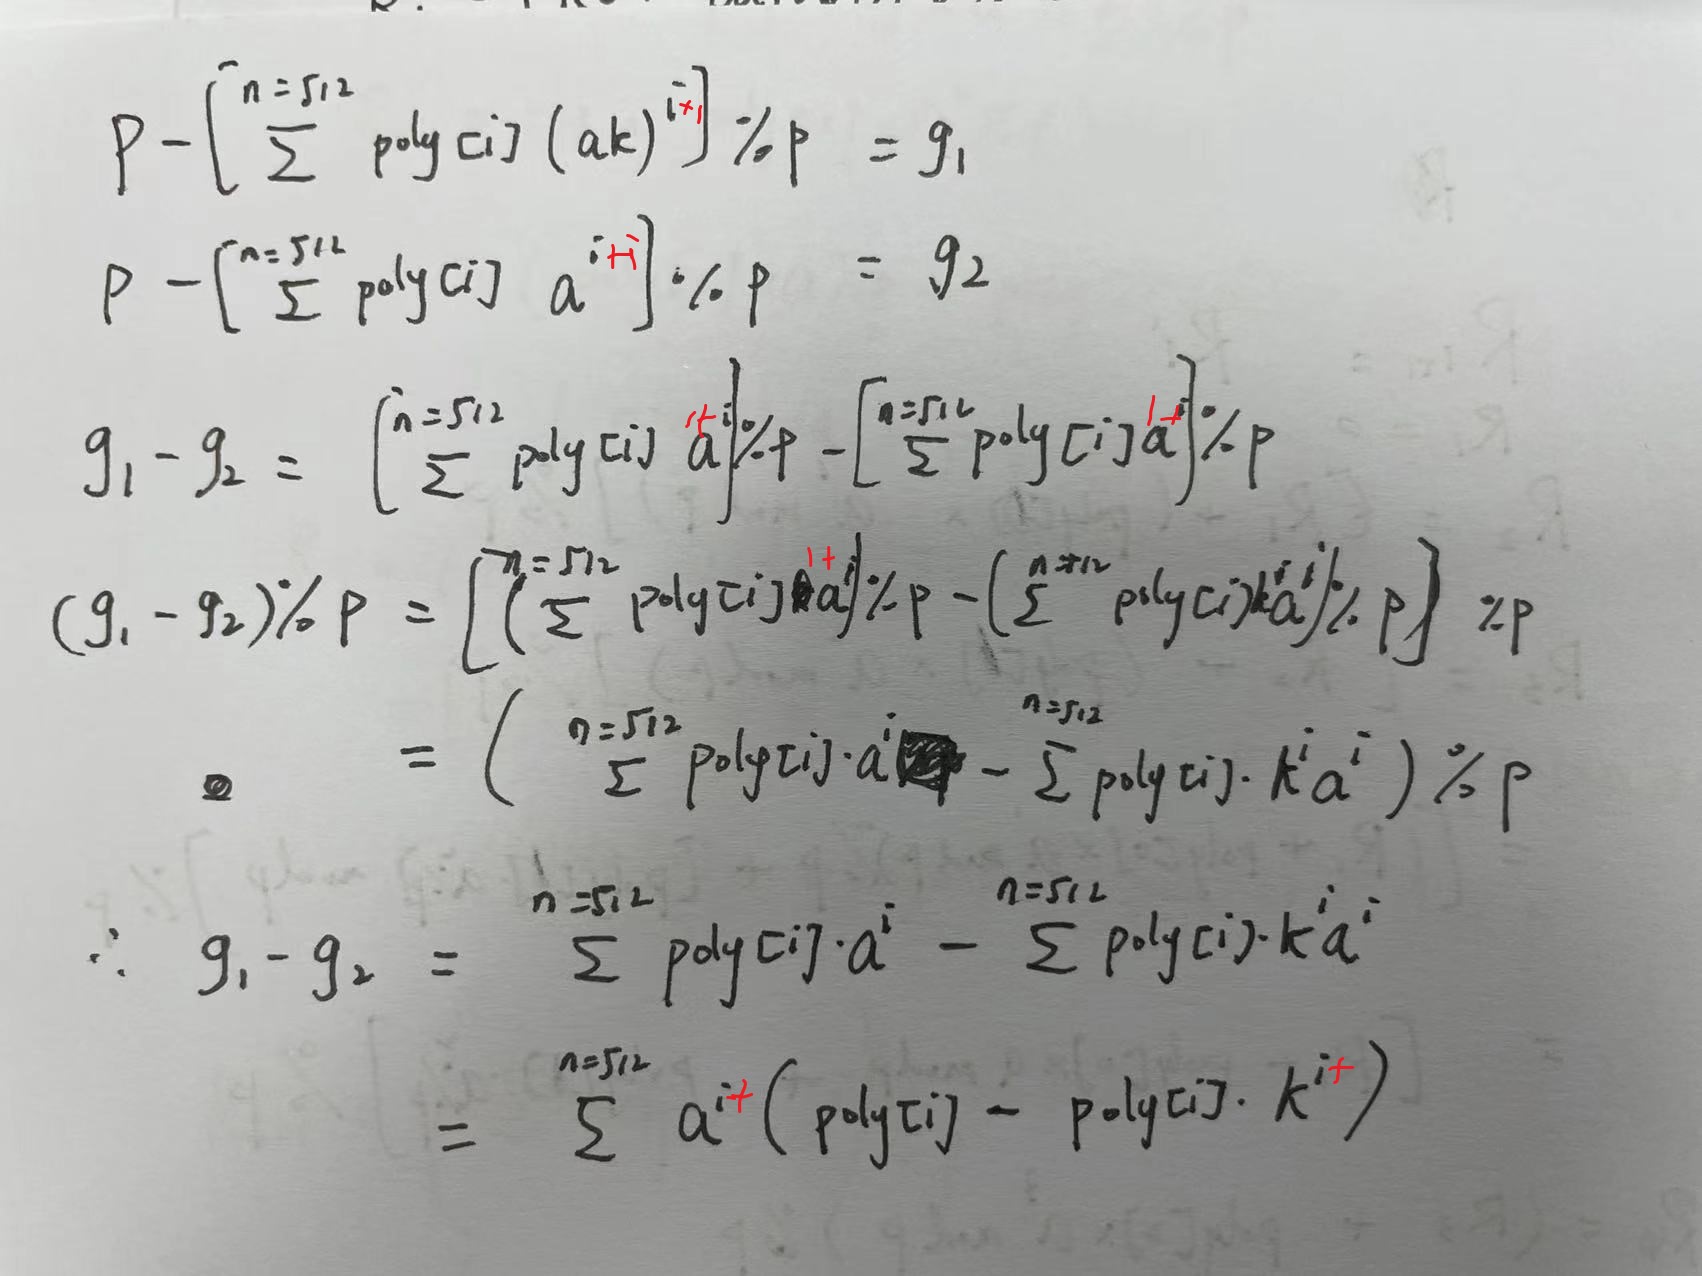 P - [ n=512 Σ poly[i] (ak)^{i+1} ] % p = g₁
p - [ n=512 Σ poly[i] a^{i+1} ] % p = g₂
g₁ - g₂ = [ n=512 Σ poly[i] a^{1+i} ] % p - [ n=512 Σ poly[i] a^{1+i} ] % p
(g₁ - g₂) % p = [ ( n=512 Σ poly[i] a^{1+i} ) % p - ( n=512 Σ poly[i] k^i a^i ) % p ] % p
= ( n=512 Σ poly[i]·a^i - n=512 Σ poly[i]·k^i a^i ) % p
∴ g₁ - g₂ = n=512 Σ poly[i]·a^i - n=512 Σ poly[i]·k^i a^i
= n=512 Σ a^{i+} ( poly[i] - poly[i]·k^{i+} )